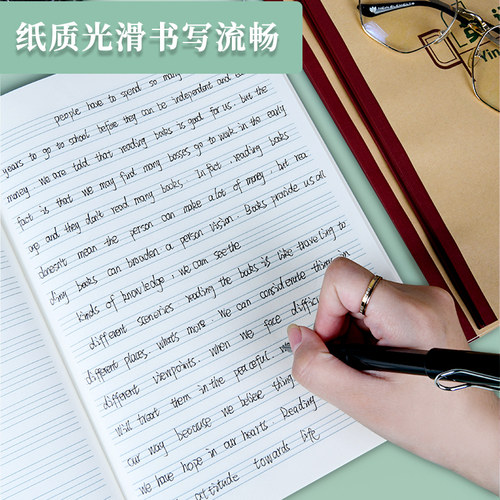 纸质光滑书写流畅
Yin
people have to spend so many
years to go to school before they can be independent and
money. We are told that reading books is good for us. but the
fact is that we may find many bosses go to work in the early
age and they don't read many books. In fact, reading books
doesn't mean the person can make a lot of money, but rea
ding books can broaden a person vision. Books provide us all
kinds of knowledge, we can see the
different sceneries reading the books is like traveling to
different places. what's more we can considerate things in
different viewpoints. when we face difficul
will treat them in the peaceful.
our way because we believe thing
we have hope in our hearts Reading
attitude towards life